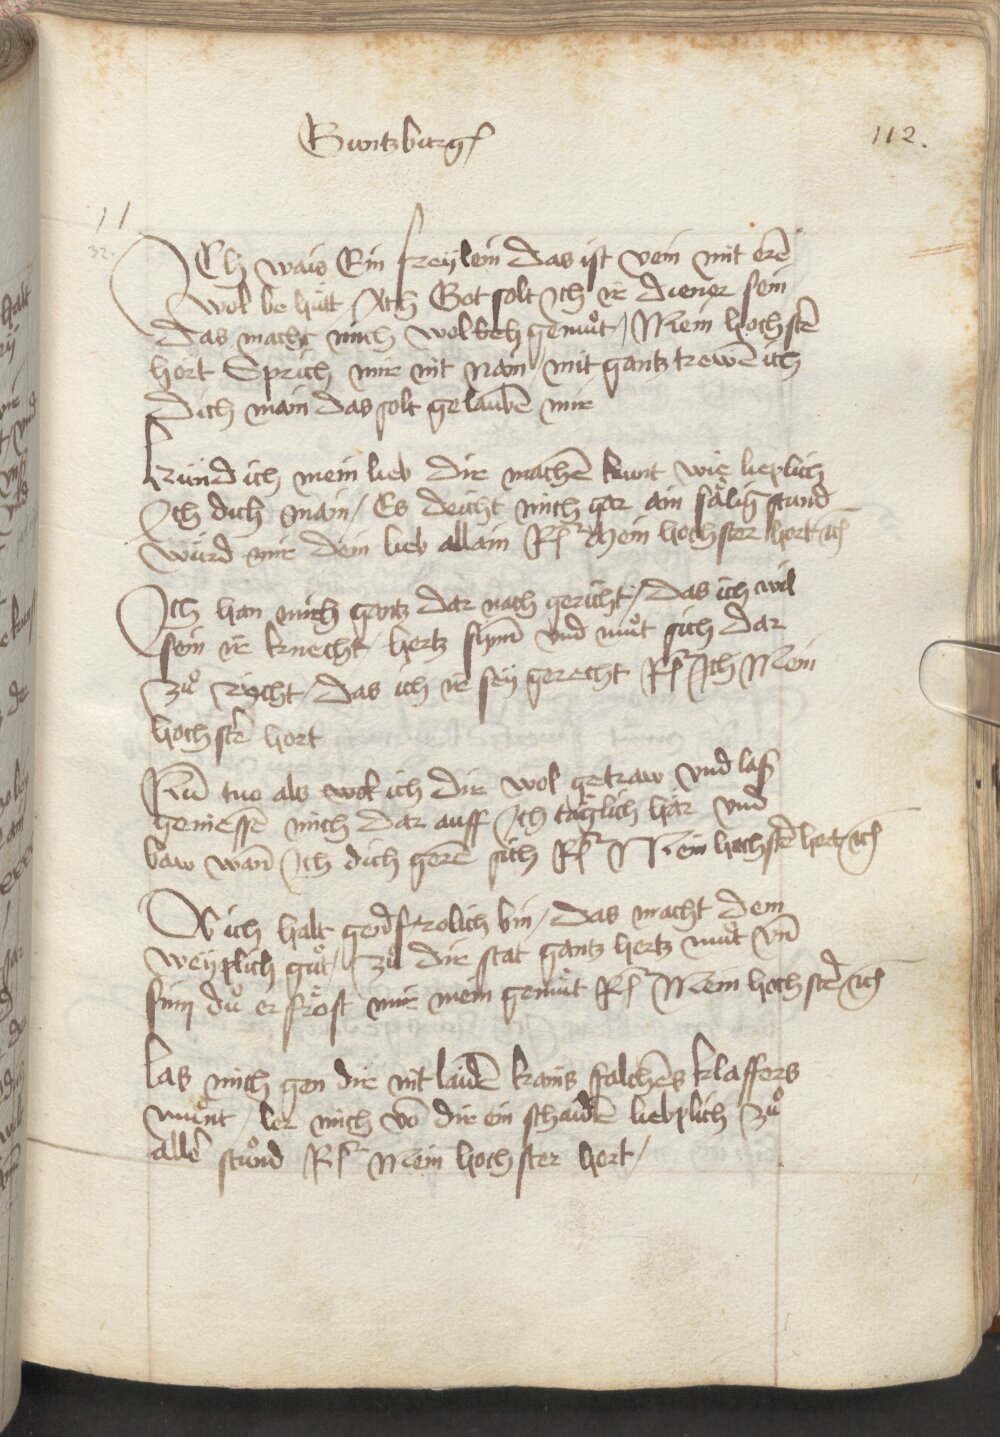 Guntzburg
112.
11
32.
Ich wais Ein freylein das ist vein mit erē
wol be hůtt Ach Got solt ich ir diener sein
das macht mich wolbehgemůt / Mein hochster
hort Sprich mir nit nain / mit gantz trewē ich
dich main das solt gelaubē mir
kründ ich mein lieb dir machē kunt wie lieplich
Ich dich main / Es deücht mich gar ain sälig stund
würd mir dein lieb allain Rf Mein hochster hort ich
Ich han mich gantz dar nach gericht / das ich wil
sein ir knecht / hertz synn vnd můt sich dar
zů rycht / das ich ir sey gerecht Rf Ich Mein
hochster hort
Nun tuo als wol ich dir wol getraw vnd las
geniessē mich dar auff Ich täglich har vnd
baw wan Ich dich gerē sich Rf Mein hochster hort ich
Ob ich halt gern frolich bin / das macht dem
weyplich gůt / zů dir stat gantz hertz můt vn
sinn du er fröst mir mein gemůt Rf Mein hochster ich
las mich gen dir nit laidē kains falchēs klaffers
munt / ler mich vō dir ein schaidē lieplich zů
allē stund Rf Mein hochster hort /